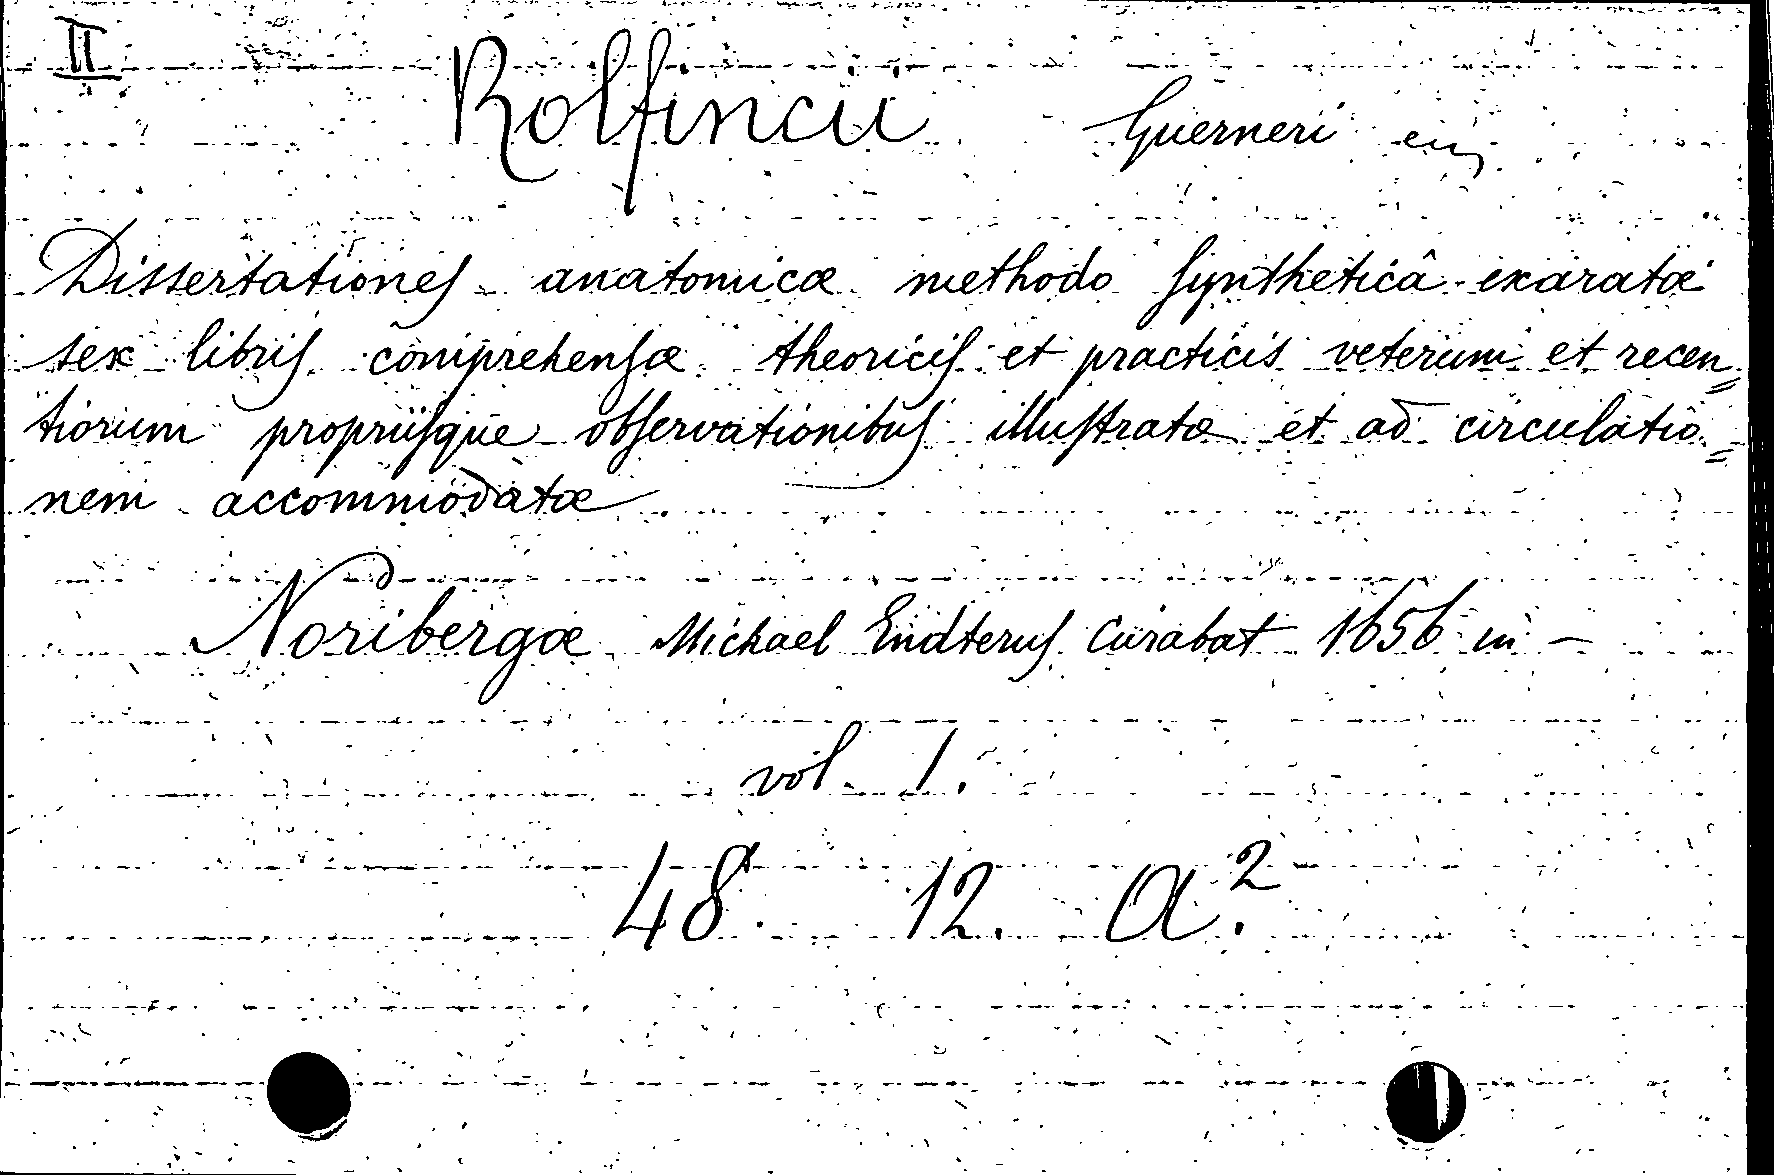 II
Rolfincii Guerneri
Dissertationes anatomicæ methodo syntheticâ exaratæ
sex libris comprehensæ theoricis et practicis veterum et recen=
tiorum propriisque observationibus illustratæ et ad circulatio=
nem accommodatæ
Noribergæ Michael Endterus curabat 1656 in –
vol. 1.
48. 12. a.²